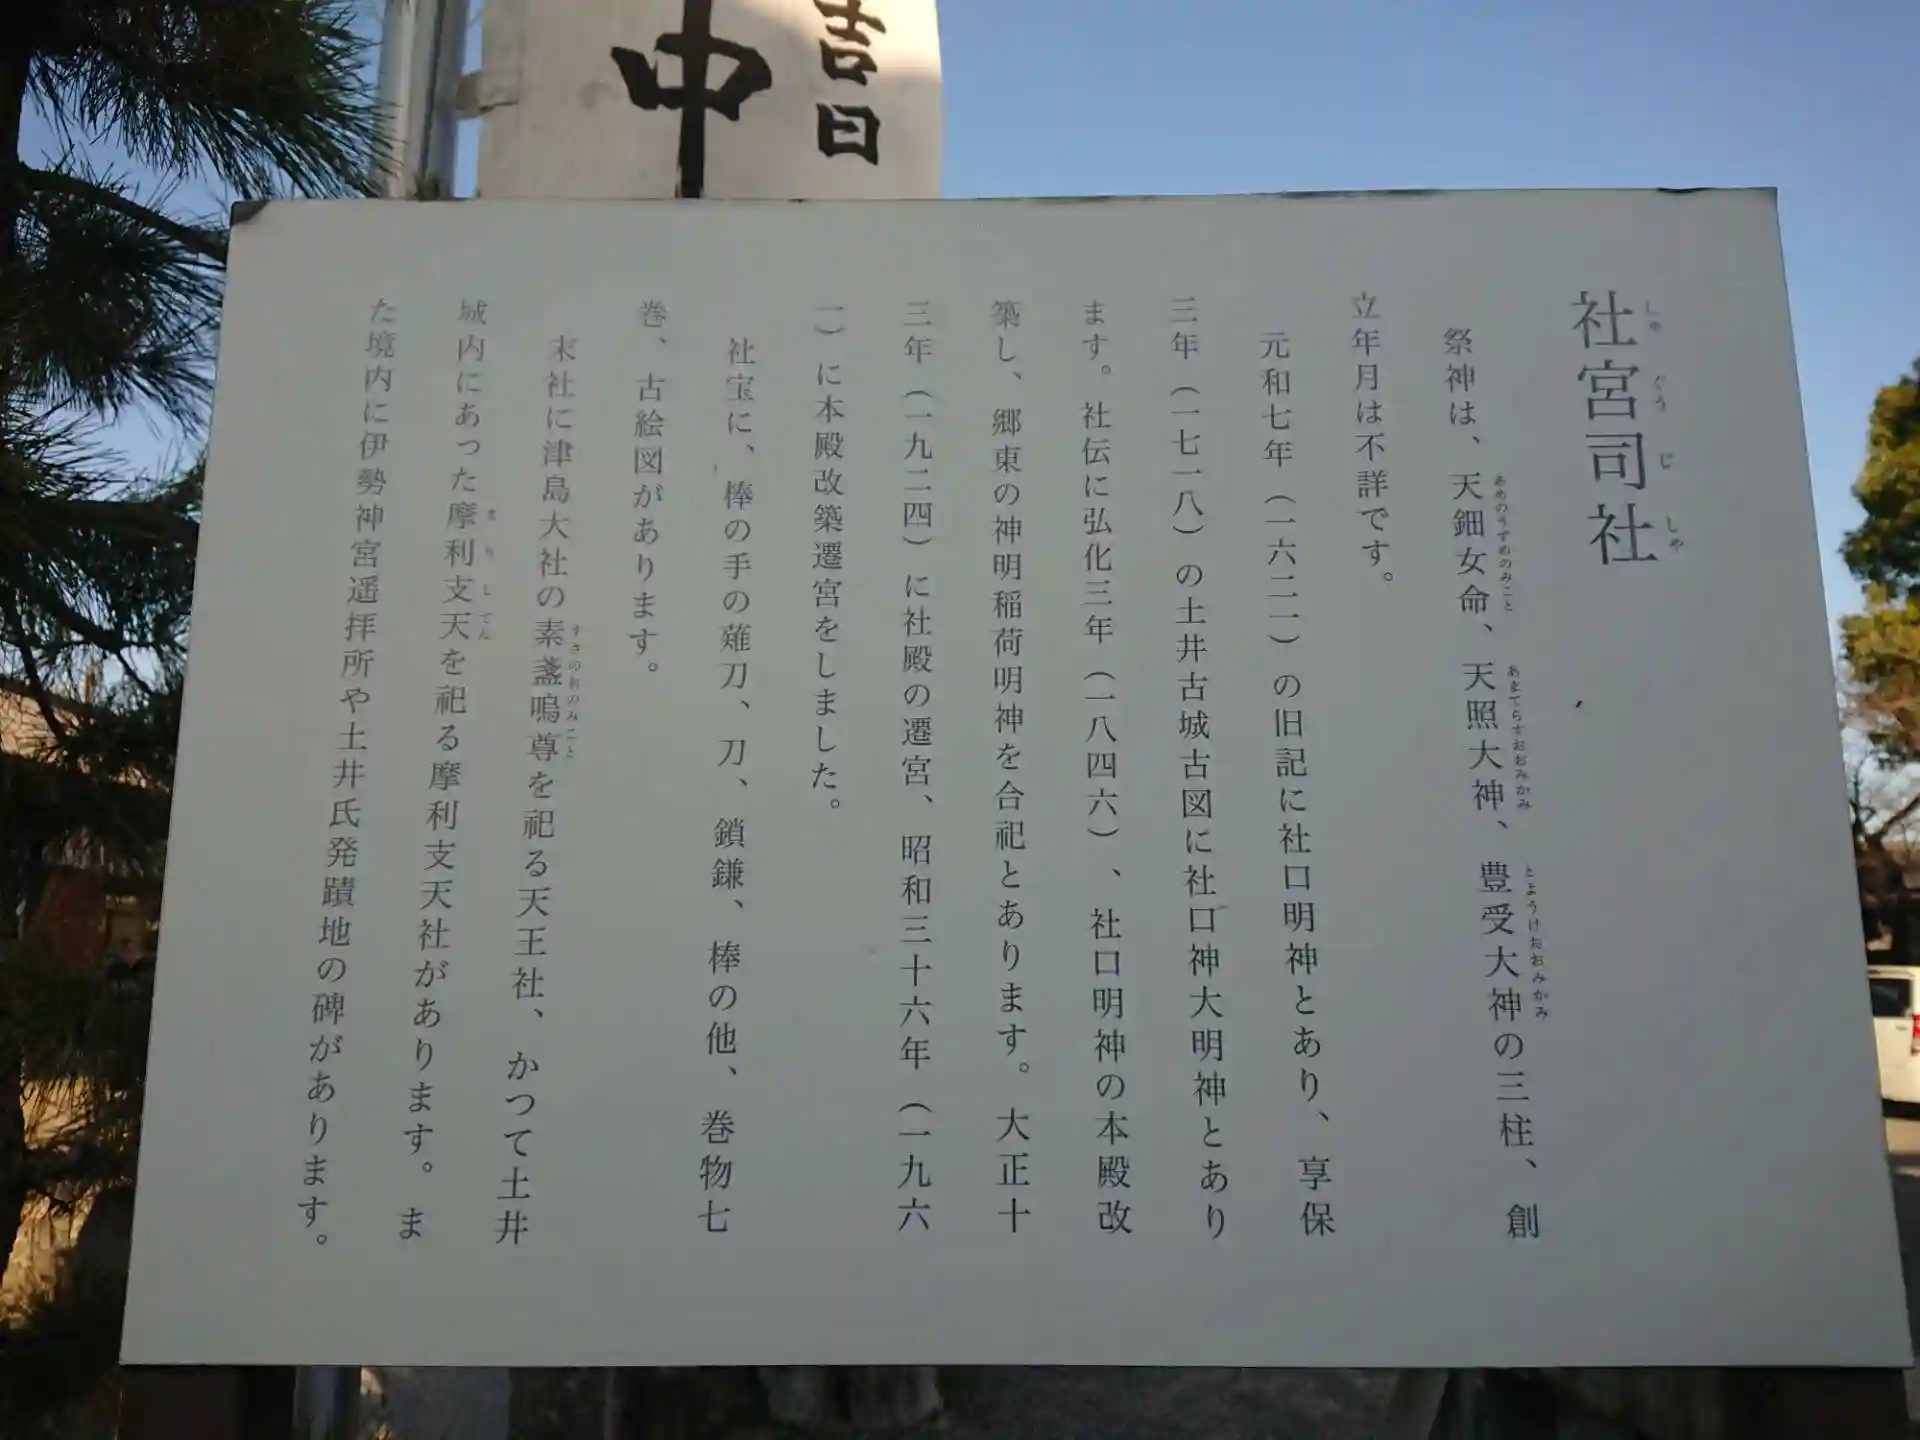 吉日
中
社宮司社
しゃぐうじしゃ
祭神は、天鈿女命、天照大神、豊受大神の三柱、創
あめのうずめのみこと
あまてらすおおみかみ
とようけおおみかみ
立年月は不詳です。
元和七年（一六二一）の旧記に社口明神とあり、享保
三年（一七一八）の土井古城古図に社口神大明神とあり
ます。社伝に弘化三年（一八四六）、社口明神の本殿改
築し、郷東の神明稲荷明神を合祀とあります。大正十
三年（一九二四）に社殿の遷宮、昭和三十六年（一九六
一）に本殿改築遷宮をしました。
社宝に、棒の手の薙刀、刀、鎖鎌、棒の他、巻物七
巻、古絵図があります。
末社に津島大社の素盞嗚尊を祀る天王社、かつて土井
すさのおのみこと
城内にあった摩利支天を祀る摩利支天社があります。ま
まりしてん
た境内に伊勢神宮遥拝所や土井氏発蹟地の碑があります。